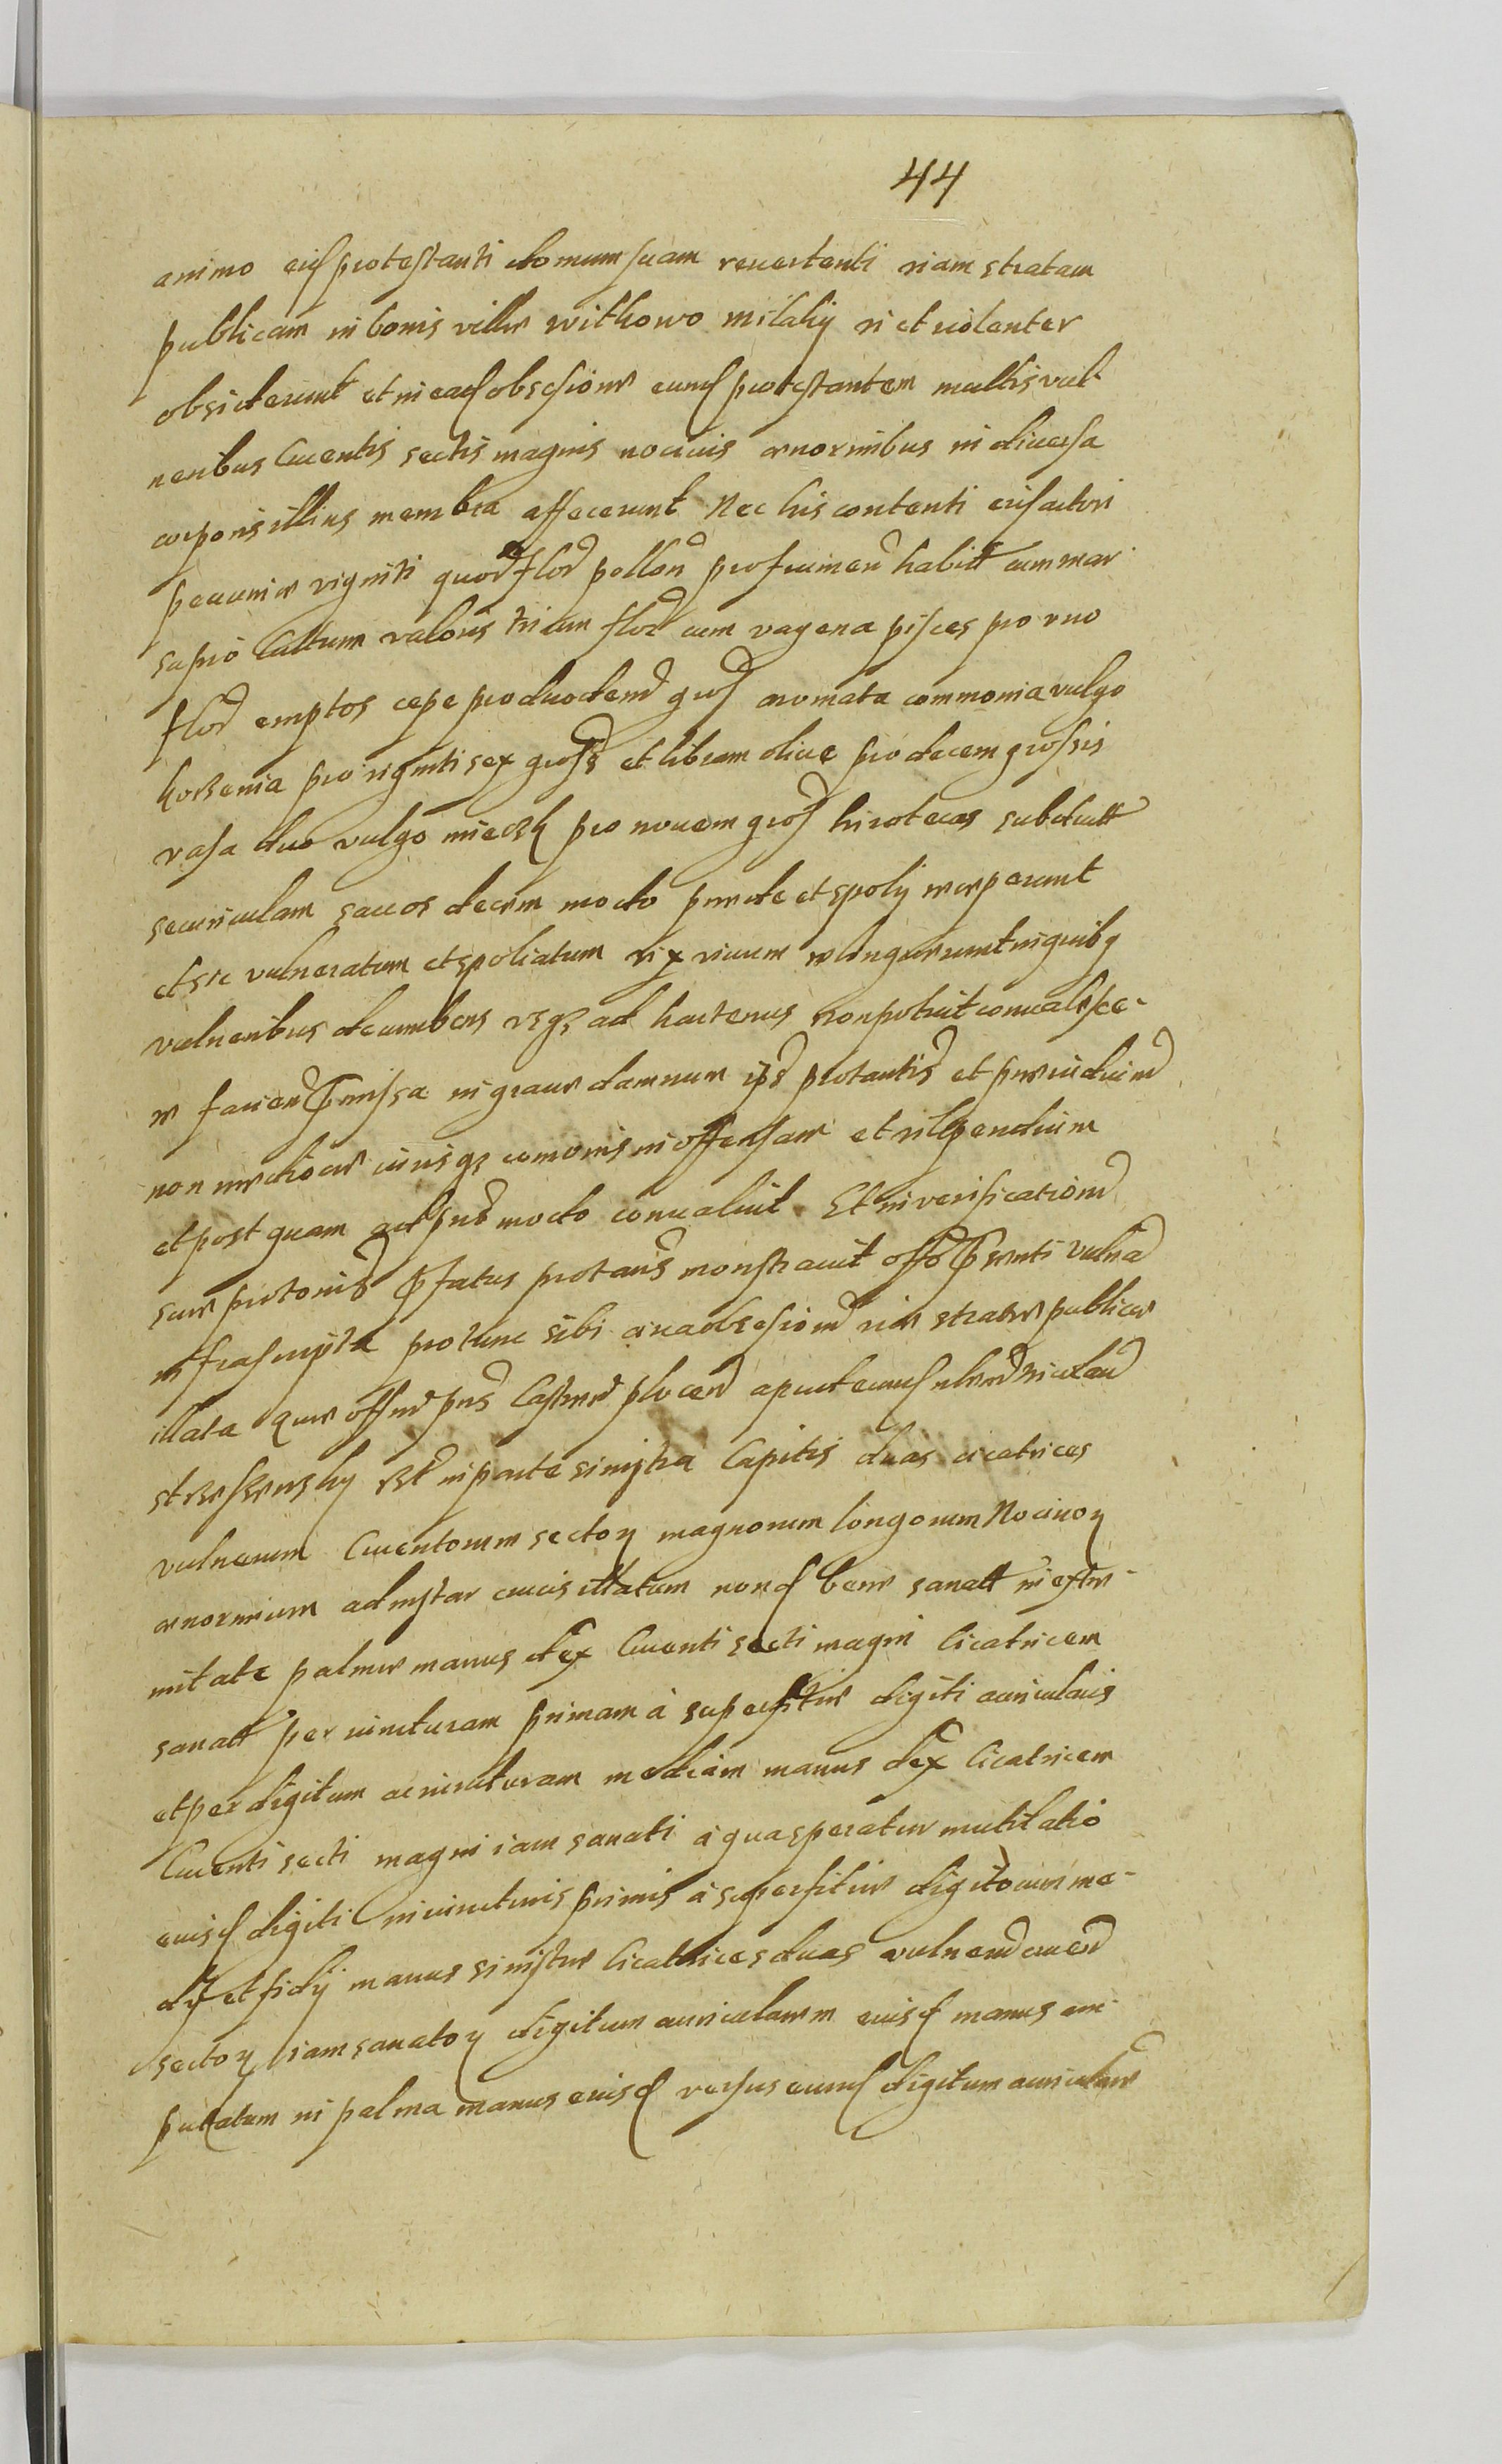 44
animo eid protestanti domum suam revertenti viam stratam
publicam in bonis villæ withowo milaky vi et violenter
obsiderunt et in ead obsesione eund protestantem multis vul-
neribus cruentis sectis magnis nocivis ænormibus in diversa
corporis illius membra affecerunt Nec his contenti eid actori
pecuniæ viginti quor flor pollon pro frumen habitt cum mar-
supio Caltum valoris trium flor cum vagena pisces pro vno
flor emptos cepe pro duodem gros aromata commonia vulgo
korzenia pro viginti sex gross et libram olivæ pro decem grossis
vasa duo vulgo pro novem gros hirotecas subdutt
securiculam saccos decem modo prædæ et spolij receperunt
et sic vulneratum et spoliatum vix vivum relinquerunt in quibq
vulneribus decumbens vsqz ad hactenus non potuit convalesce-
re facien præmissa in grave damnum ipso protantis et præiudicium
non mediocre iurisqz comunis in offensam et vilipendium
et post quam ad præns modo convaluit. Et in verificationem
suæ protonis præfatus protans monstravit offo præsenti vulna
infrascripta pro tunc sibi circa obsesionem viæ stratæ publicæ
illata quæ offm præns Castren plocen apud eund
in parte sinistra Capitis duas cicatrices
vulnerum Cruentorum sectoru magnorum longorum Nocivoru
ænormium ad instar crucis illatum nond bene sanatt in extre-
mitate palmæ manus dex Cruenti secti magni Cicatricem
sanatt per iuncturam primam à superfitie digiti auricularis
et per digitum ac iuncturam mediam manus dex Cicatricem
Cruenti secti magni iam sanati à qua speratur mutilatio
eiusd digiti in iuncturis primis à superfitie digitorum me-
dij et manus sinistræ Cicatrices duas vulnerum cruen
sectoru iam sanatoru digitum auricularem eiusd manus am-
putatum in palma manus eiusd versus eund digitum auricular